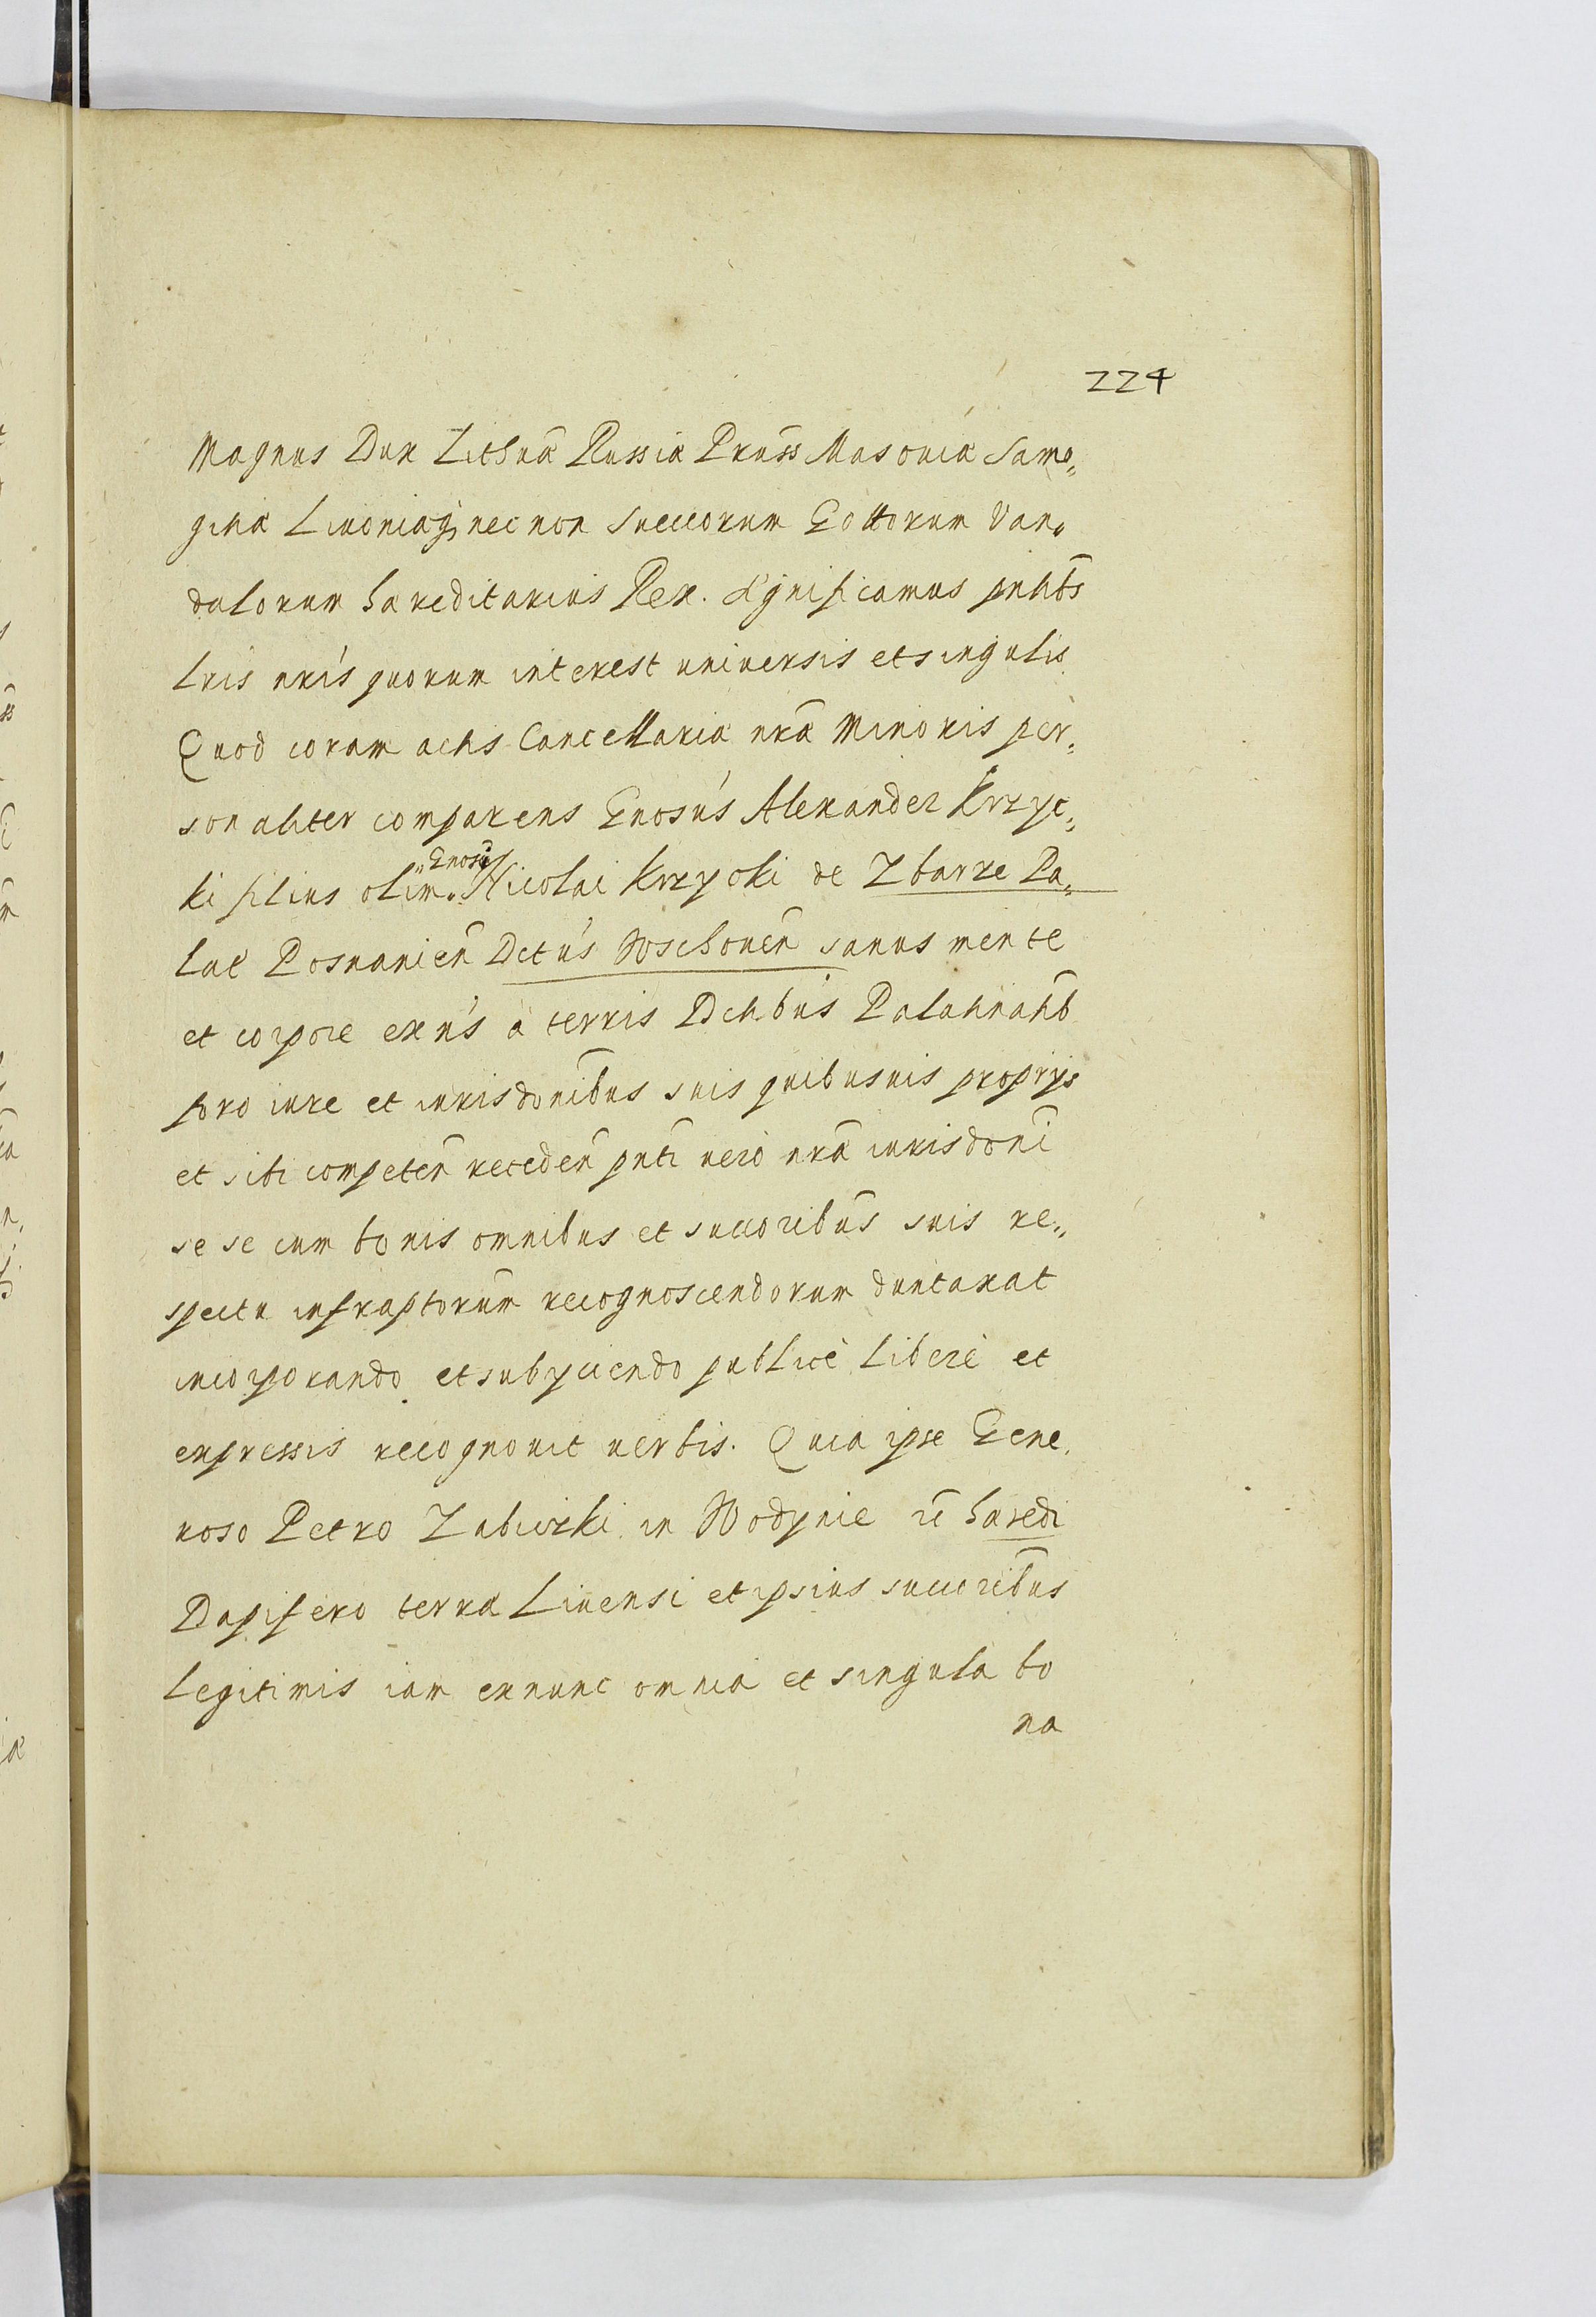 224
Magnus Dux Lithuã Russiæ Prũss Masoviæ Samo„
gitiæ Livoniæq; nec non Sueccorum Gottorum Van„
dalorum hæreditarius Rex. Significamus pnhb̃s
Lris nris quorum interest universis et singulis
Quod coram actis Cancellariæ nræ Minoris per„
sonaliter comparens Gnosus Alexander Krzyc„
ki filius olim Gnosi Nicolai Krzycki de Zbarze Pa„
latt Posnanieñ Dctus Wschoueñ sanus mente
et corpore exns a terris Dctbus Palatinatib̃
foro iure et iurisdonibus suis quibusuis proprijs
et sibi competeñ recedeñ pnti vero nræ iurisdoni
se se cum bonis omnibus et succoribus suis re„
spectu infraptorum recognoscendorum duntaxat
incorporando et subyciendo publicè liberè et
expressis recognouit verbis. Quia ipse Gene„
roso Petro Zabicki in Wodynie hæredi
Dapifero terræ Liuensi et ipsius succoribus
legitimis iam exnunc omnia et singula bo
na